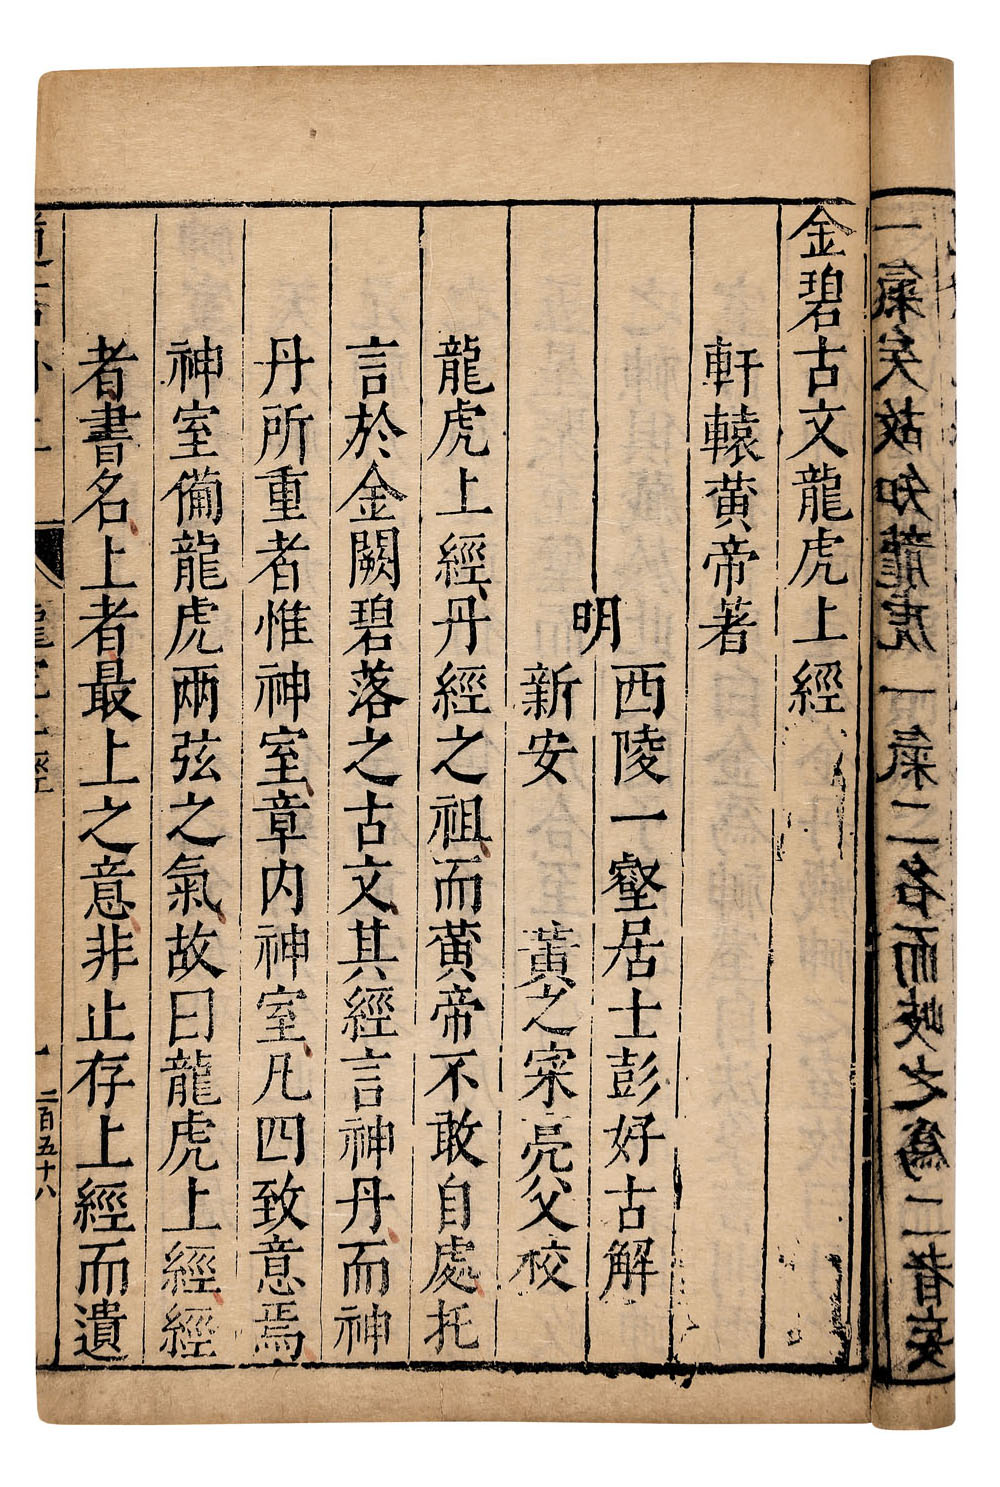 金碧古文龍虎上經
軒轅黃帝著
明
西陵一壑居士彭好古解
新安 黃之寀亮父校
龍虎上經丹經之祖而黃帝不敢自處托
言於金闕碧落之古文其經言神丹而神
丹所重者惟神室章内神室凡四致意焉
神室備龍虎兩弦之氣故曰龍虎上經經
者書名上者最上之意非止存上經而遺
二百五十八
一氣矣故知龍虎一氣二名而岐之為二者妄